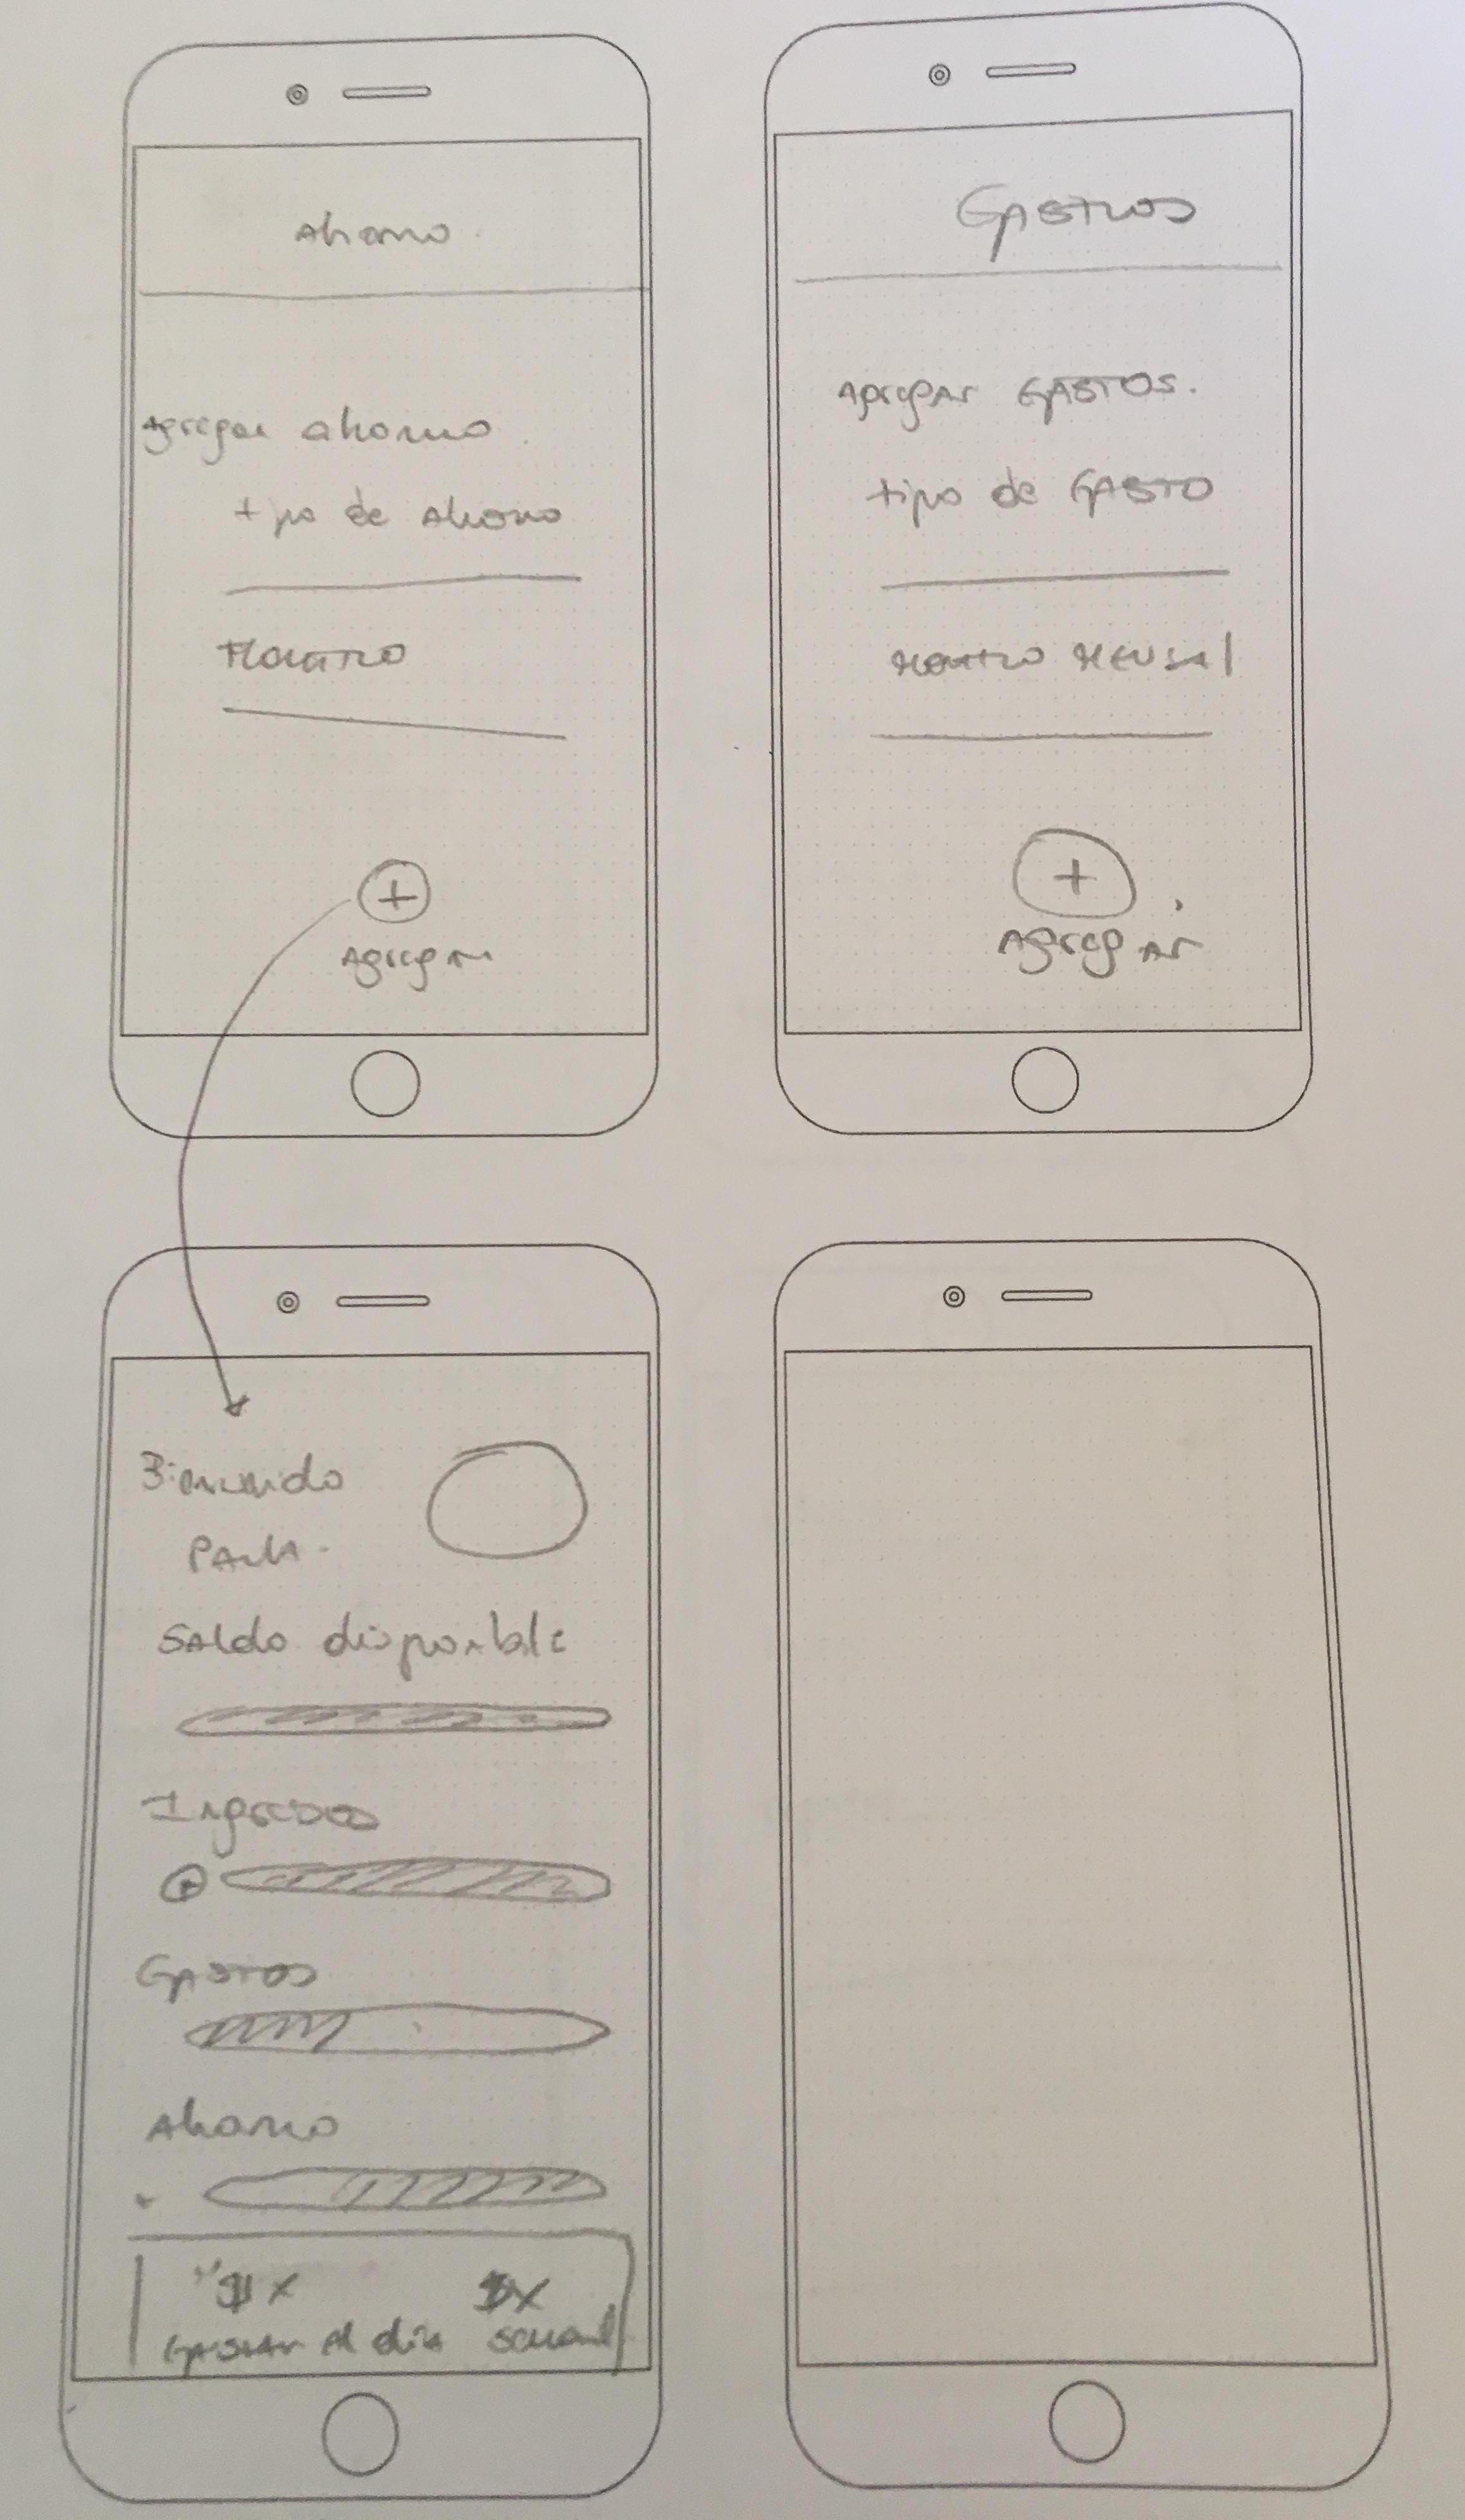 Ahorro
Agregar ahorro
tipo de Ahorro
Monto
+
Agregar
GASTOS
Agregar GASTOS.
tipo de GASTO
Monto Mensal
+
Agregar
Bienvenido
Saldo disponible
Ingresos
Gastos
Ahorro
$x $x
Gastar al día semanal